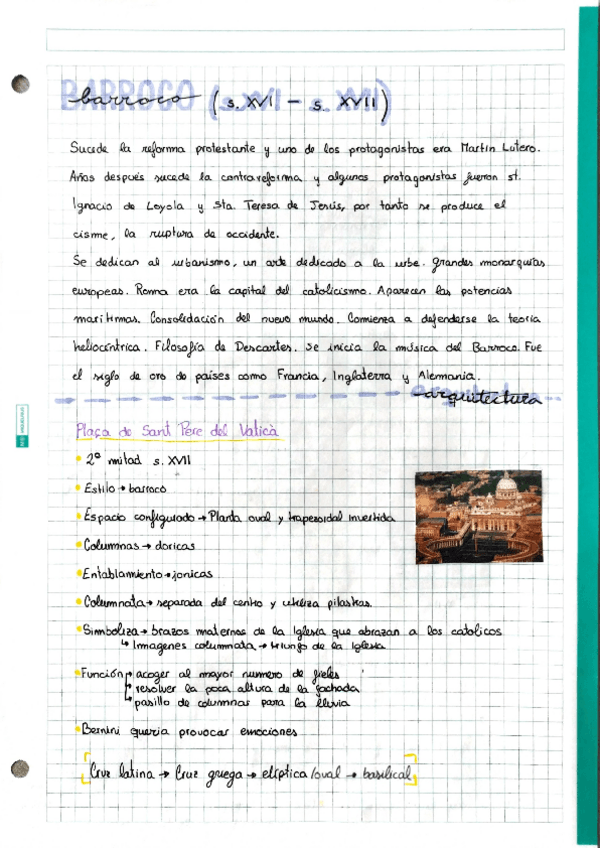 BARROCO (s. XVI - s. XVII)
Sucede la reforma protestante y uno de los protagonistas era Martin Lutero.
Años después sucede la contrareforma y algunos protagonistas fueron st.
Ignacio de Loyola y Sta. Teresa de Jesús, por tanto se produce el
cisme, la ruptura de occidente.
Se dedican al urbanismo, un arte dedicado a la urbe. Grandes monarquías
europeas. Roma era la capital del catolicismo. Aparecen las potencias
marítimas. Consolidación del nuevo mundo. Comienza a defenderse la teoría
heliocéntrica. Filosofía de Descartes. Se inicia la música del Barroco. Fue
el siglo de oro de países como Francia, Inglaterra y Alemania.
arquitectura
Plaça de Sant Pere del Vaticà
2ª mitad s. XVII
Estilo → barroco
Espacio configurado → Planta oval y trapezoidal invertida
Columnas → doricas
Entablamiento → jonicas
Columnata → separada del centro y utiliza pilastras.
Simboliza → brazos maternos de la Iglesia que abrazan a los catolicos
↳ Imagenes columnata → triunfo de la Iglesia
Función → acoger al mayor numero de fieles
↳ resolver la poca altura de la fachada
↳ pasillo de columnas para la lluvia
Bernini queria provocar emociones
[Cruz latina → Cruz griega → elíptica/oval → basilical]